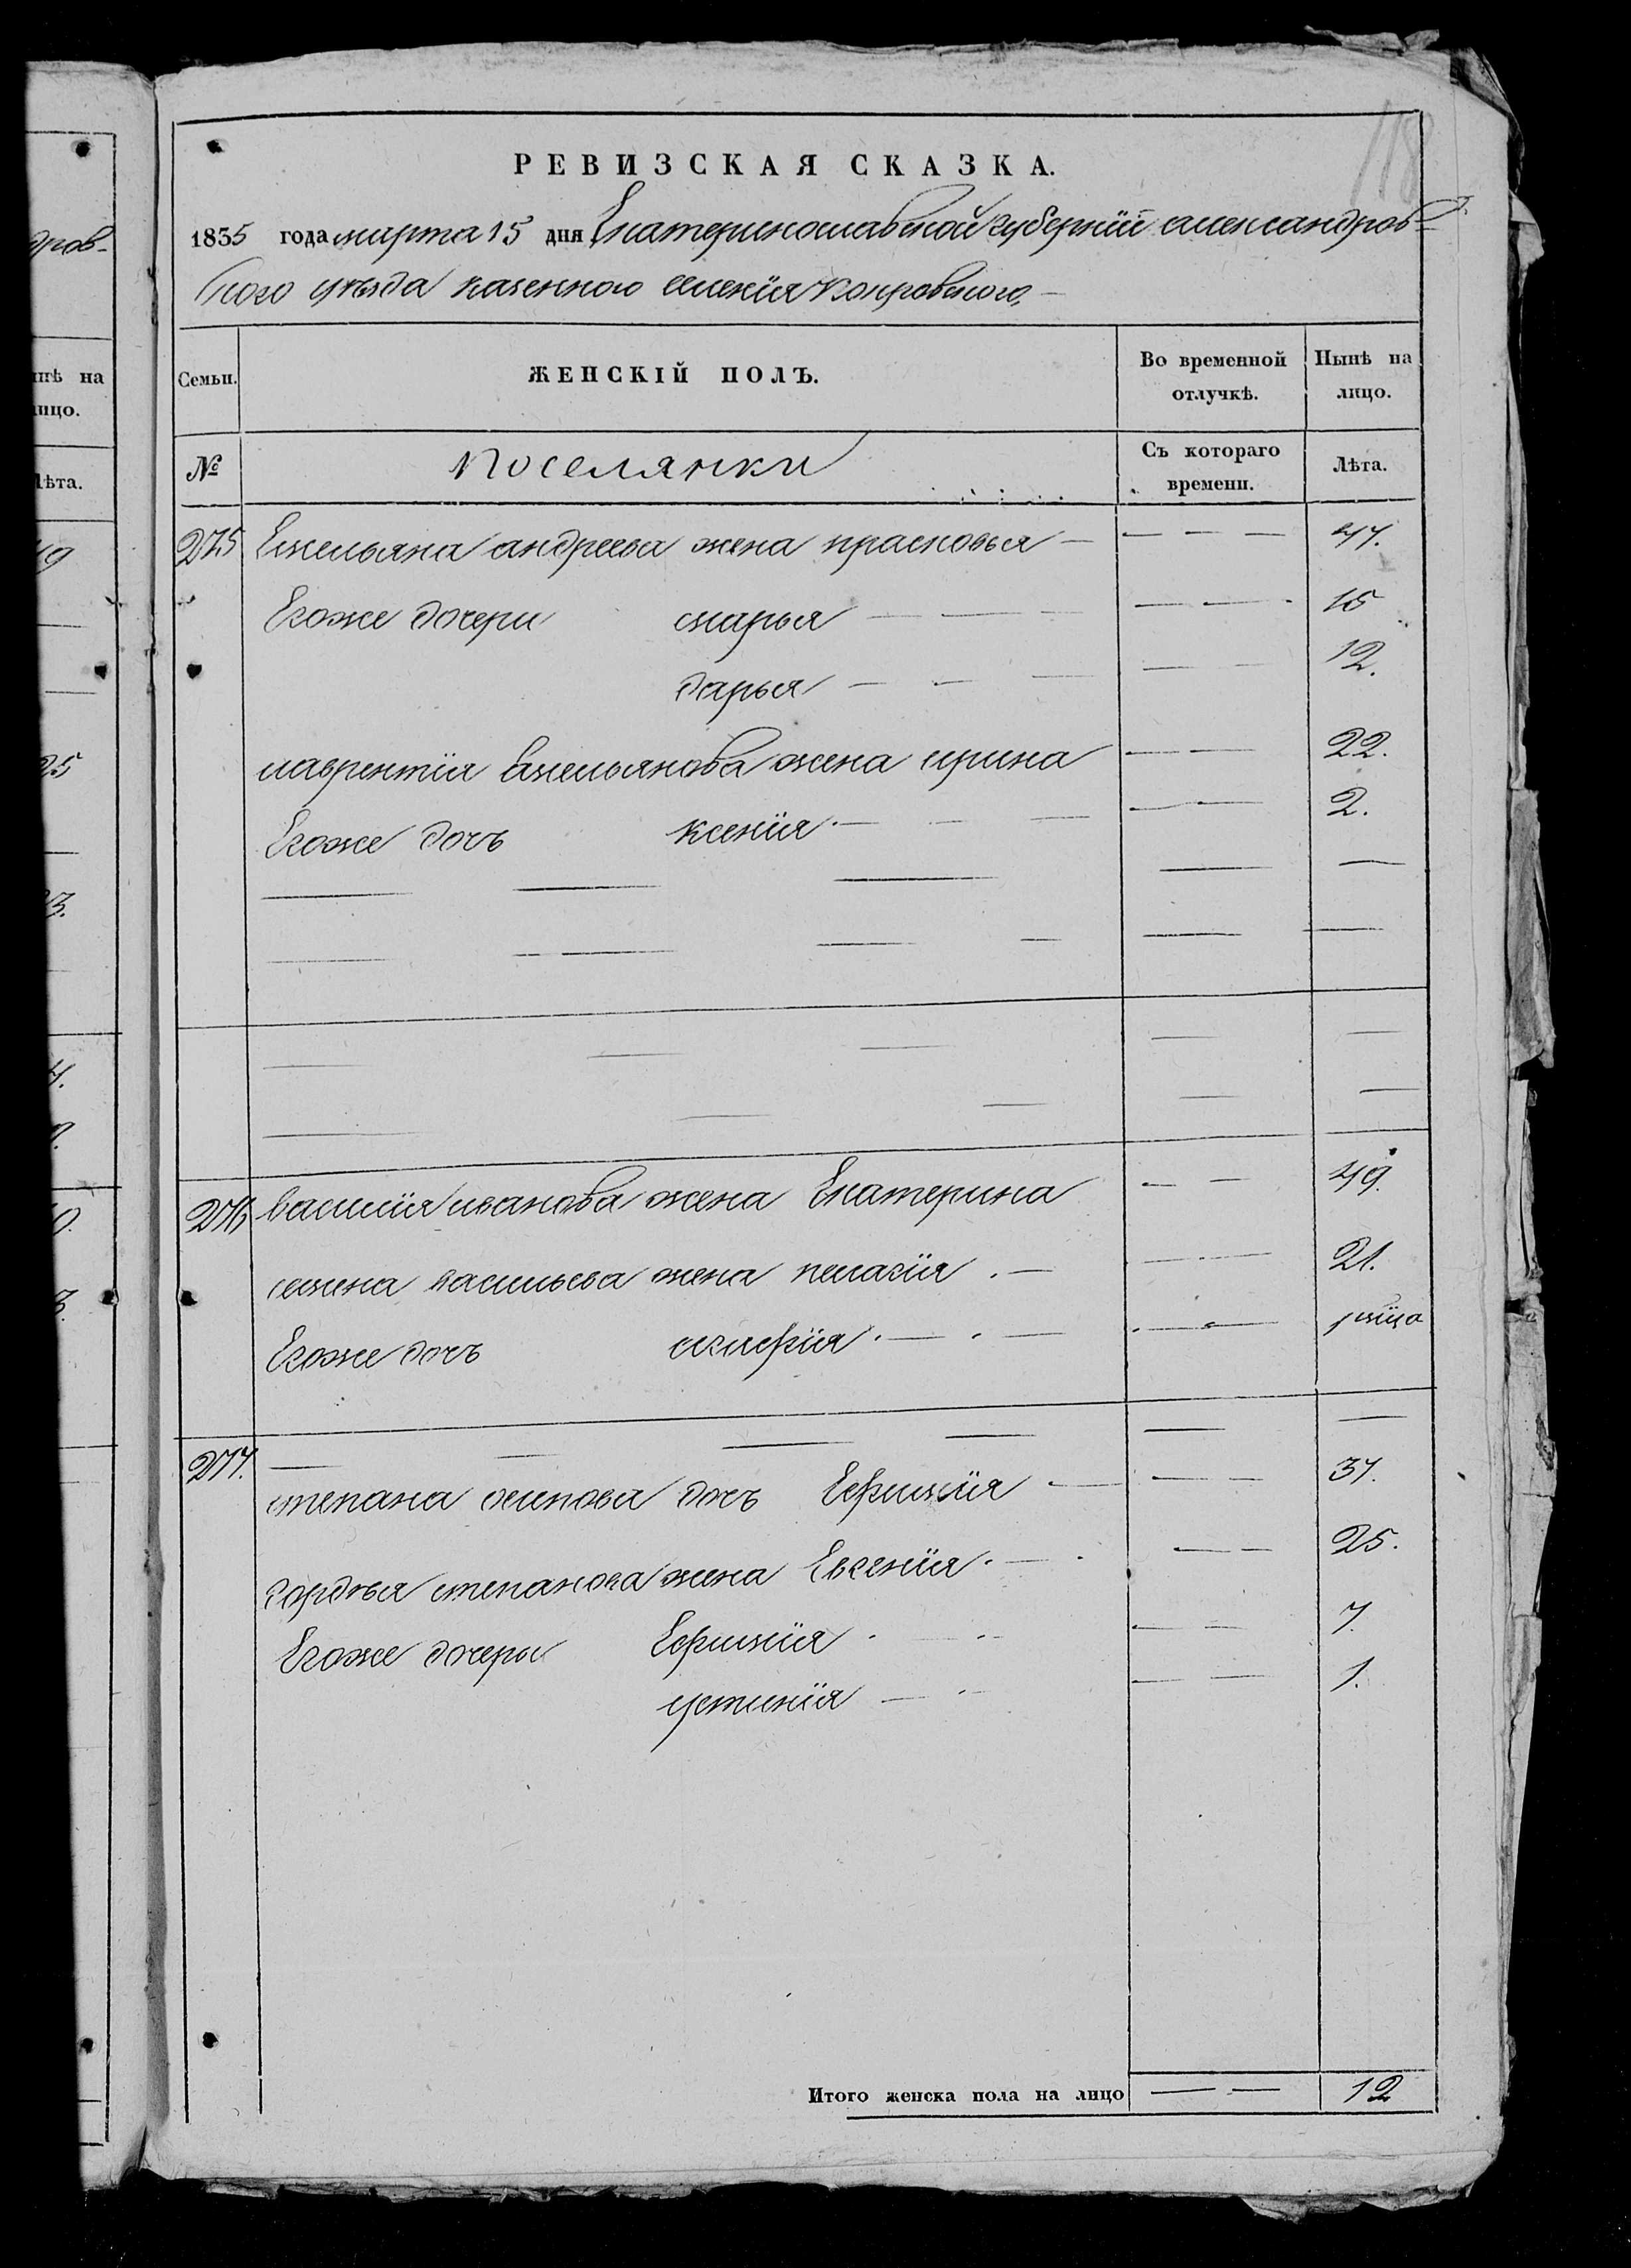 118
РЕВИЗСКАЯ СКАЗКА.
1835 года марта 15 дня Екатеринославской губернїи александров-
ского уѣзда казенного селенїя покровского,
Семьи. ЖЕНСКІЙ ПОЛЪ. Во временной отлучкѣ. Нынѣ на лицо.
№ поселянки Съ котораго времени. Лѣта.
275 Емельяна андреева жена прасковья — — — — 47.
Егоже дочери марья — — — 15
дарья — — — 12.
лаврентїя Емельянова жена ирина — — 22.
Егоже дочь ксенїя — — — 2.
276 василїя иванова жена Екатерина — — 49.
семена васильева жена пелагїя — — 21.
Егоже дочь — —
277. степана осипова дочь Ефимїя — — — 37.
гордѣя степанова жена Евгенїя — — — 25.
Егоже дочери Ефимїя — — 7.
устинїя — — — 1.
Итого женска пола на лицо — — 12
дров-
нѣ на
лицо.
Лѣта.
25